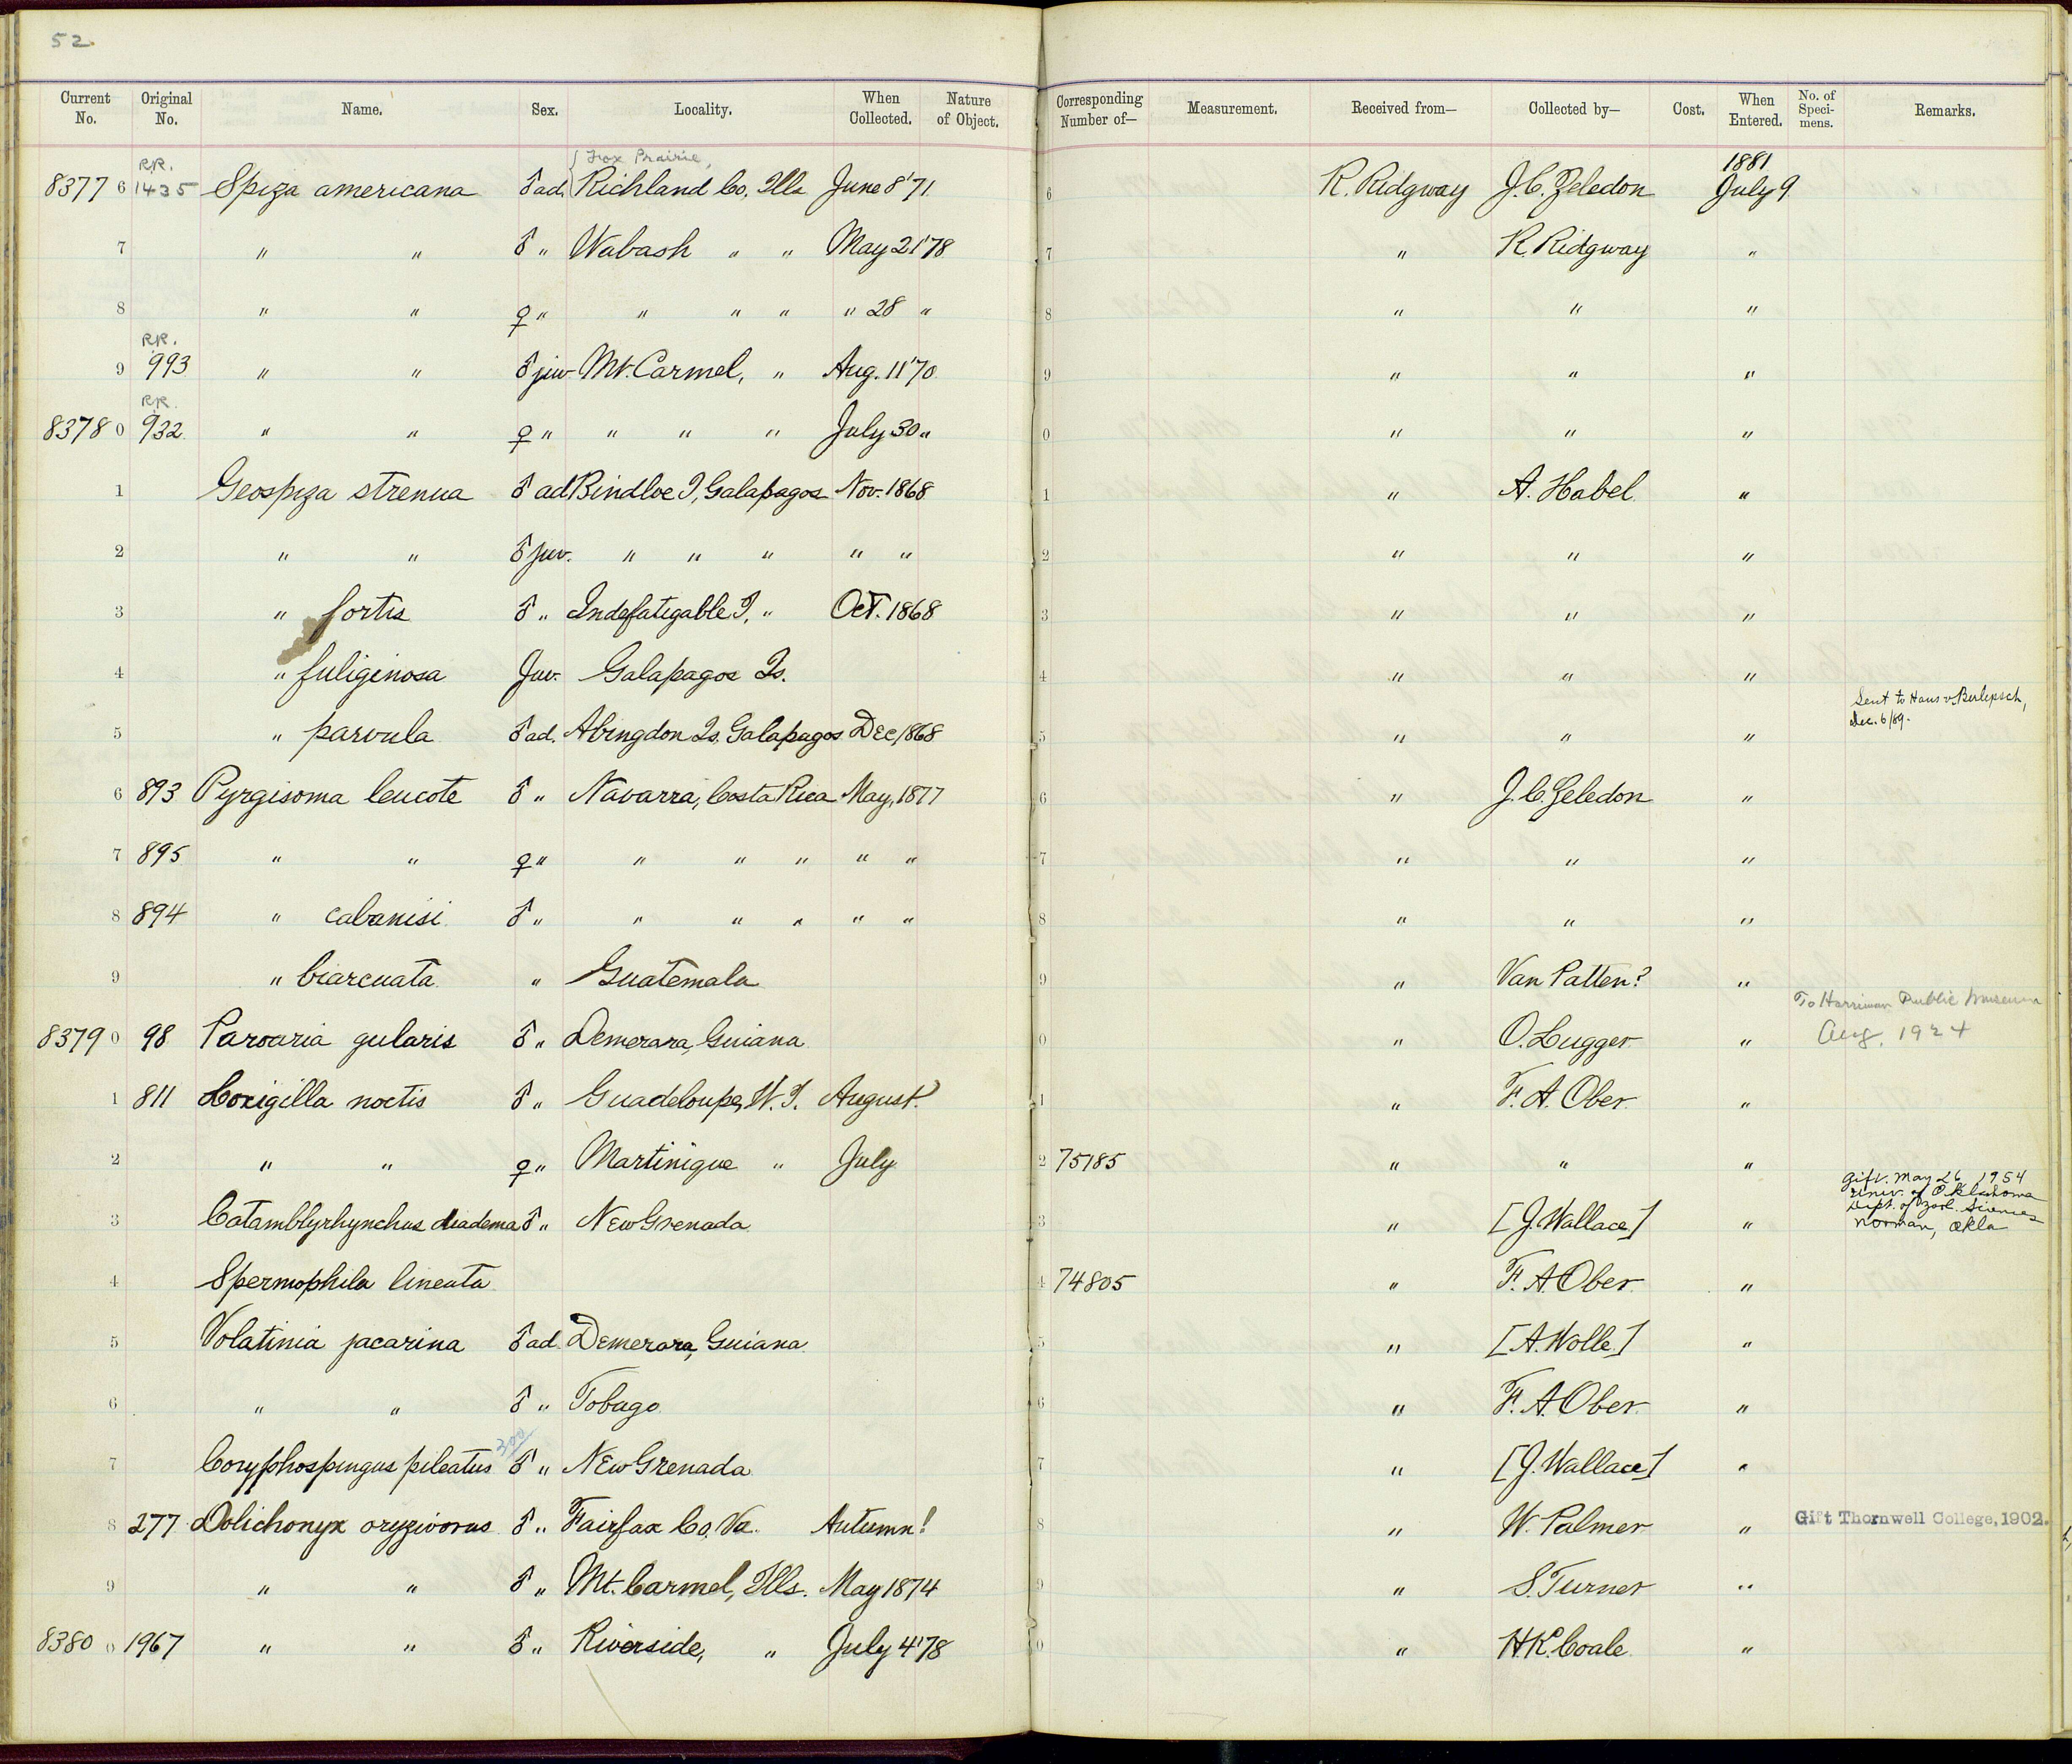 52
Current No. Original No. Name. Sex. Locality. When Collected. Nature of Object. Corresponding Number of— Measurement. Received from— Collected by— Cost. When Entered. No. of Specimens. Remarks.
R.R. { Fox Prairie, 1881
8377 6 1435 Spiza americana ♂ ad. Richland Co., Ills June 8 '71 6 R. Ridgway J. C. Zeledon July 9
7 " " ♂ " Wabash " " May 21 '78 7 " R. Ridgway "
8 " " ♀ " " " " " 28 " 8 " " "
R.R.
9 993 " " ♂ juv Mt. Carmel, " Aug. 11 '70 9 " " "
R.R.
8378 0 932 " " ♀ " " " " July 30 " 0 " " "
1 Geospiza strenua ♂ ad Bindloe I, Galapagos Nov. 1868 1 " A. Habel "
2 " " ♂ juv. " " " " " 2 " " "
3 " fortis ♂ " Indefatigable I, " Oct. 1868 3 " " "
4 " fuliginosa Juv. Galapagos Is. 4 " " "
5 " parvula ♂ ad. Abingdon Is. Galapagos Dec, 1868 5 " " " Sent to Hans v. Berlepsch, Dec. 6/89.
6 893 Pyrgisoma leucote ♂ " Navarra, Costa Rica May, 1877 6 " J. C. Zeledon "
7 895 " " ♀ " " " " " " 7 " " "
8 894 " cabanisi ♂ " " " " " " 8 " " "
9 " biarcuata " Guatemala 9 " Van Patten? "
8379 0 98 Paroaria gularis ♂ " Demerara, Guiana 0 " O. Lugger " To Harriman Public Museum Aug. 1924
1 811 Loxigilla noctis ♂ " Guadeloupe, W. I. August. 1 " F. A. Ober "
2 " " ♀ " Martinique " July 2 75185 " " "
3 Catamblyrhynchus diadema ♂ " New Grenada 3 " [J. Wallace] " Gift. May 26, 1954
Univ. of Oklahoma
Dept. of Zool. Sciences
Norman, Okla
4 Spermophila lineata 4 74805 " F. A. Ober "
5 Volatinia jacarina ♂ ad. Demerara, Guiana 5 " [A. Wolle] "
6 " " ♂ " Tobago 6 " F. A. Ober "
7 Coryphospingus pileatus ♂ " New Grenada 7 " [J. Wallace] "
8 277 Dolichonyx oryzivorus ♂ " Fairfax Co, Va. Autumn! 8 " W. Palmer " Gift Thornwell College, 1902.
9 " " ♂ " Mt. Carmel, Ills. May 1874 9 " S. Turner "
8380 0 1967 " " ♂ " Riverside, " July 4 '78 0 " H. K. Coale "